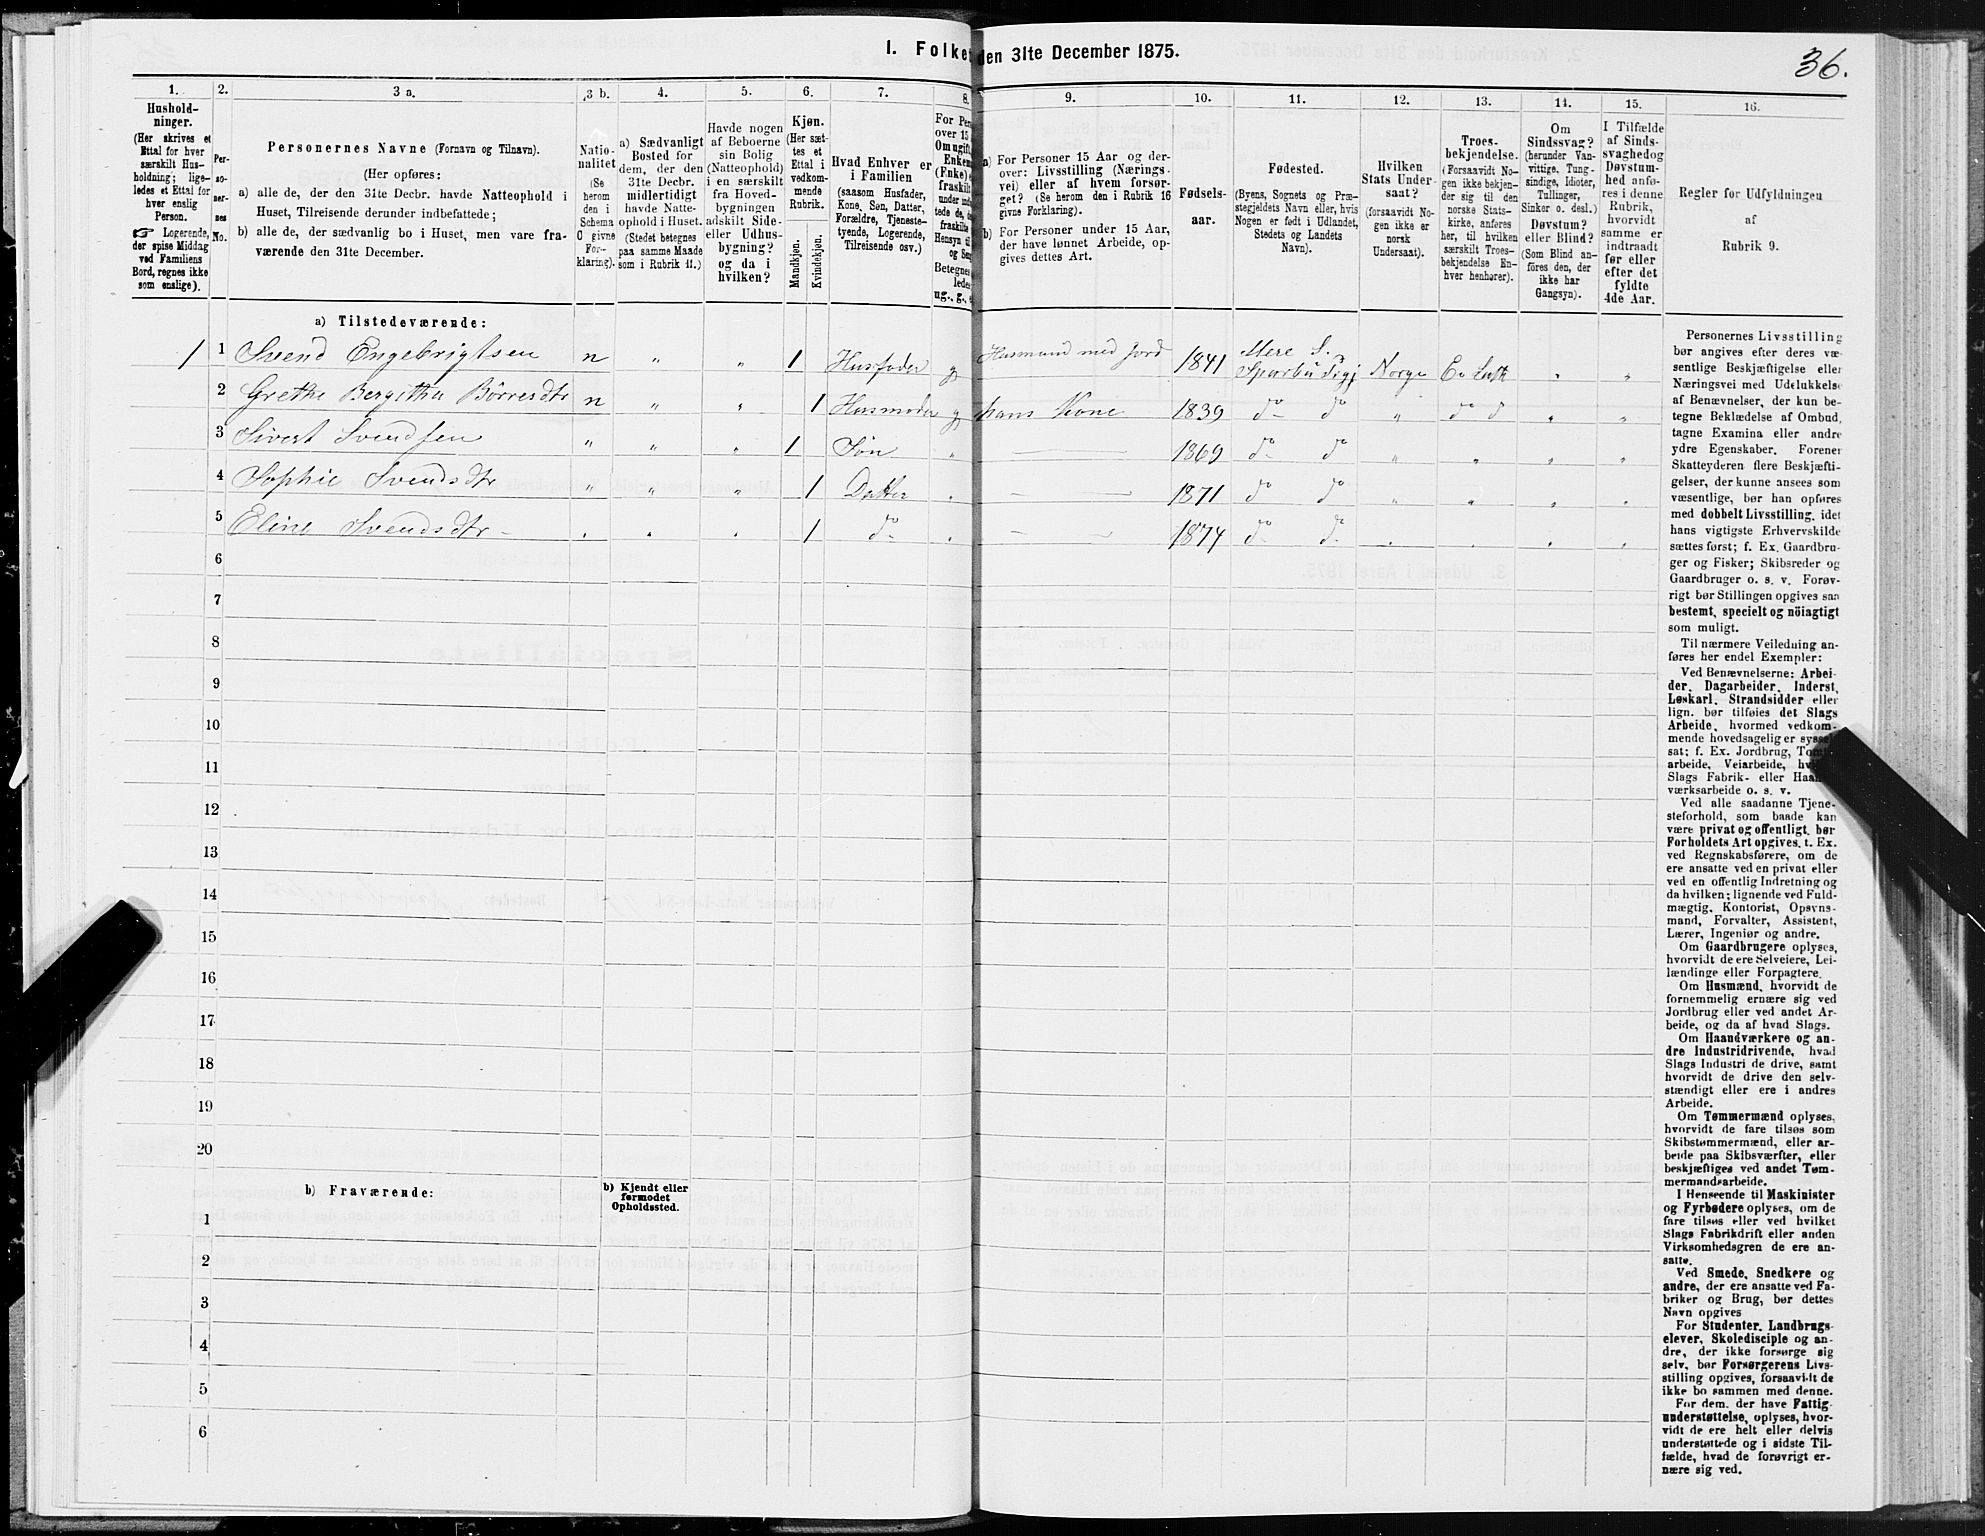 I. Folket den 31te December 1875.
36.
1.
Hushold-
ninger.
(Her skrives et
Ettal for hver
særskilt Hus-
holdning; lige-
ledes et Ettal for
hver enslig
Person.
☞ Logerende,
der spise Middag
ved Familiens
Bord, regnes ikke
som enslige).
2.
Per-
so-
ner-
nes
No.
3 a.
Personernes Navne (Fornavn og Tilnavn).
(Her opføres:
a) alle de, der den 31te Decbr. havde Natteophold i
Huset, Tilreisende derunder indbefattede;
b) alle de, der sædvanlig bo i Huset, men vare fra-
værende den 31te December.
3 b.
Natio-
nalitet
(Se
herom
den i
Schema
C givne
For-
klaring).
4.
a) Sædvanligt
Bosted for
dem, der den
31te Decbr.
midlertidigt
havde Natte-
ophold i Huset.
(Stedet betegnes
paa samme Maade
som i Rubrik 11.)
5.
Havde nogen
af Beboerne
sin Bolig
(Natteophold)
i en særskilt
fra Hoved-
bygningen
adskilt Side-
eller Udhus-
bygning?
og da i
hvilken?
6.
Kjøn.
(Her sæt-
tes et
Ettal i
vedkom-
mende
Rubrik.
Mandkjøn.
Kvindekjøn.
7.
Hvad Enhver er
i Familien
(saasom Husfader,
Kone, Søn, Datter,
Forældre, Tjeneste-
tyende, Logerende,
Tilreisende osv.)
8.
For Pers
over 15
Om ugift,
Enkem
(Enke) e
fraskilt
under ind
tede de,
fraskilte
Hensyn til
og Sen
Betegnes
ledes
ug., g., e
9.
a) For Personer 15 Aar og der-
over: Livsstilling (Nærings-
vei) eller af hvem forsør-
get? (Se herom den i Rubrik 16
givne Forklaring).
b) For Personer under 15 Aar,
der have lønnet Arbeide, op-
gives dettes Art.
10.
Fødsels-
aar.
11.
Fødested.
(Byens, Sognets og Præ-
stegjeldets Navn eller, hvis
Nogen er født i Udlandet,
Stedets og Landets
Navn).
12.
Hvilken
Stats Under-
saat?
(forsaavidt No-
gen ikke er
norsk
Undersaat).
13.
Troes-
bekjendelse.
(Forsaavidt No-
gen ikke bekjen-
der sig til den
norske Stats-
kirke, anføres
her, til hvilken
særskilt Troes-
bekjendelse En-
hver henhører).
14.
Om
Sindssvag?
(herunder Van-
vittige, Tung-
sindige, Idioter,
Tullinger,
Sinker o. desl.)
Døvstum?
eller Blind?
(Som Blind an-
føres den, der
ikke har
Gangsyn).
15.
I Tilfælde
af Sinds-
svaghed og
Døvstum-
hed anfø-
res i denne
Rubrik,
hvorvidt
samme er
indtraadt
før eller
efter det
fyldte
4de Aar.
16.
Regler for Udfyldningen
af
Rubrik 9.
a) Tilstedeværende:
1 1 Svend Engebrigtsen n " " 1 Husfader g Husmand med Jord 1841 Mere S. Sparbu Prgj Norge Ev Luth " "
2 Grethe Bergitha Börresdtr n " " 1 Husmoder g hans Kone 1839 do do " do do " "
3 Sivert Svendsen " " " 1 Søn " — 1869 do do " " " "
4 Sophie Svendsdtr " " " 1 Datter " — 1871 do do " " " "
5 Eline Svendsdtr - " " " 1 do " — 1874 do do " " " "
6
7
8
9
10
11
12
13
14
15
16
17
18
19
20
b) Fraværende:
b) Kjendt eller
formodet
Opholdssted.
1
2
3
4
5
6
Personernes Livsstilling
bør angives efter deres væ-
sentlige Beskjæftigelse eller
Næringsvei med Udelukkelse
af Benævnelser, der kun be-
tegne Beklædelse af Ombud,
tagne Examina eller andre
ydre Egenskaber. Forener
Skatteyderen flere Beskjæfti-
gelser, der kunne ansees som
væsentlige, bør han opføres
med dobbelt Livsstilling, idet
hans vigtigste Erhvervskilde
sættes først; f. Ex. Gaardbru-
ger og Fisker; Skibsreder og
Gaardbruger o. s. v. Forøv-
rigt bør Stillingen opgives saa
bestemt, specielt og nöiagtigt
som muligt.
Til nærmere Veiledning an-
føres her endel Exempler:
Ved Benævnelserne: Arbei-
der, Dagarbeider, Inderst,
Løskarl, Strandsidder eller
lign. bør tilføies det Slags
Arbeide, hvormed vedkom-
mende hovedsagelig er syssel-
sat; f. Ex. Jordbrug, Tom
arbeide, Veiarbeide, hvi
Slags Fabrik- eller Haan
værksarbeide o. s. v.
Ved alle saadanne Tjene-
steforhold, som baade kan
være privat og offentligt, bør
Forholdets Art opgives, f. Ex.
ved Regnskabsførere, om de
ere ansatte ved en privat eller
ved en offentlig Indretning og
da hvilken; lignende ved Fuld-
mægtig, Kontorist, Opsyns-
mand, Forvalter, Assistent,
Lærer, Ingeniør og andre.
Om Gaardbrugere oplyses,
hvorvidt de ere Selveiere, Lei-
lændinge eller Forpagtere.
Om Husmænd, hvorvidt de
fornemmelig ernære sig ved
Jordbrug eller ved andet Ar-
beide, og da af hvad Slags.
Om Haandværkere og an-
dre Industridrivende, hvad
Slags Industri de drive, samt
hvorvidt de drive den selv-
stændigt eller ere i andres
Arbeide.
Om Tømmermænd oplyses,
hvorvidt de fare tilsøs som
Skibstømmermænd, eller ar-
beide paa Skibsværfter, eller
beskjæftiges ved andet Tøm-
mermandsarbeide.
I Henseende til Maskinister
og Fyrbødere oplyses, om de
fare tilsøs eller ved hvilket
Slags Fabrikdrift eller anden
Virksomhedsgren de ere an-
satte.
Ved Smede, Snedkere og
andre, der ere ansatte ved Fa-
briker og Brug, bør dettes
Navn opgives
For Studenter, Landbrugs-
elever, Skoledisciple og an-
dre, der ikke forsørge sig
selv, bør Forsørgerens Livs-
stilling opgives, forsaavidt de
ikke bo sammen med denne.
For dem, der have Fattig-
understøttelse, oplyses, hvor-
vidt de ere helt eller delvis
understøttede og i sidste Til-
fælde, hvad de forøvrigt er-
nære sig ved.